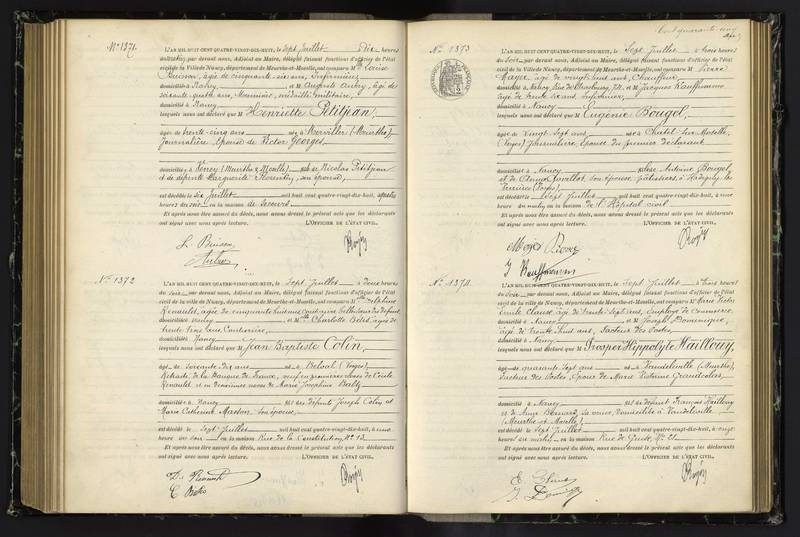 N° 1371.
L'AN MIL HUIT CENT QUATRE-VINGT-DIX-HUIT, le sept Juillet dix heures
du matin, par devant nous, Adjoint au Maire, délégué faisant fonctions d'officier de l'état
civil de la Ville de Nancy, département de Meurthe-et-Moselle, ont comparu M Louise
Buisson, âgée de cinquante six ans, Infirmière,
domiciliée à Nancy, et M Auguste Aubry, âgé de
soixante quatre ans, médaillé militaire,
domicilié à Nancy
lesquels nous ont déclaré que Henriette Petitjean,
âgée de trente-cinq ans née à Merviller (Meurthe),
Journalière, épouse de Victor Georgel,
domiciliée à (Meurthe & Moselle) fille de Nicolas Petitjean
et de défunte Marguerite Florentin, son épouse,
est décédée le six Juillet mil huit cent quatre-vingt-dix-huit, à
heures du soir en la maison de secours
Et après nous être assuré du décès, nous avons dressé le présent acte que les déclarants
ont signé avec nous après lecture. L'OFFICIER DE L'ÉTAT CIVIL,
L. Buisson
Aubry
N° 1372
L'AN MIL HUIT CENT QUATRE-VINGT-DIX-HUIT, le sept Juillet à deux heures
du soir, par devant nous, Adjoint au Maire, délégué faisant fonctions d'officier de l'état
civil de la ville de Nancy, département de Meurthe-et-Moselle, ont comparu M Delphine
Renauld, âgée de cinquante huit ans, Couturière, belle-sœur du défunt
domiciliée à Nancy et M Charlotte âgée de
trente trois ans, Couturière,
domiciliée à Nancy
lesquels nous ont déclaré que Jean Baptiste Colin,
âgé de soixante dix ans né à Belval (Vosges),
Retraité de la Banque de France, veuf en premières noces de Cécile
Renauld et en deuxièmes noces de Marie Joséphine
domicilié à Nancy fils des défunts Joseph Colin et
Marie Catherine son épouse,
est décédé le sept Juillet mil huit cent quatre-vingt-dix-huit, à une
heure du soir en la maison Rue de la Constitution, N° 13
Et après nous être assuré du décès, nous avons dressé le présent acte que les déclarants
ont signé avec nous après lecture. L'OFFICIER DE L'ÉTAT CIVIL,
D. Renauld
Cent quarante-cinq
N° 1373
L'AN MIL HUIT CENT QUATRE-VINGT-DIX-HUIT, le Sept Juillet à trois heures
du soir, par devant nous, Adjoint au Maire, délégué faisant fonctions d'officier de l'état
civil de la ville de Nancy, département de Meurthe-et-Moselle, ont comparu M Pierre
Mayer, âgé de vingt huit ans, Chauffeur,
domicilié à Nancy, Rue de Strasbourg, et M Jacques Kauffmann
âgé de trente six ans, Infirmier,
domicilié à Nancy
lesquels nous ont déclaré que Eugénie Bougel,
âgée de Vingt Sept ans née à Chatel sur Moselle,
(Vosges) Journalière, épouse du premier déclarant
domiciliée à Nancy fille Antoine Bougel
et de son épouse, à Hadigny les
Verrières (Vosges)
est décédée le sept Juillet mil huit cent quatre-vingt-dix-huit, à
heures du matin en la maison de l'Hôpital civil
Et après nous être assuré du décès, nous avons dressé le présent acte que les déclarants
ont signé avec nous après lecture. L'OFFICIER DE L'ÉTAT CIVIL,
Mayer Pierre
J Kauffmann
N° 1374.
L'AN MIL HUIT CENT QUATRE-VINGT-DIX-HUIT, le Sept Juillet à trois heures
du soir, par devant nous, Adjoint au Maire, délégué faisant fonctions d'officier de l'état
civil de la ville de Nancy, département de Meurthe-et-Moselle, ont comparu M Marie Victor
Emile Claude, âgé de trente sept ans, employé de Commerce,
domicilié à Nancy et M Joseph Dominique,
âgé de trente huit ans, Facteur des Postes,
domicilié à Nancy
lesquels nous ont déclaré que Prosper Hippolyte Haillouy,
âgé de quarante sept ans né à Vaudeléville (Meurthe),
Facteur des Postes, époux de Marie Victorine Grandcolin,
domicilié à Nancy fils de défunt François Haillouy
et de Anne Bernard, sa veuve, domiciliée à Vaudeléville
(Meurthe et Moselle)
est décédé le sept Juillet mil huit cent quatre-vingt-dix-huit, à onze
heures du matin en la maison Rue de N° 21
Et après nous être assuré du décès, nous avons dressé le présent acte que les déclarants
ont signé avec nous après lecture. L'OFFICIER DE L'ÉTAT CIVIL,
E. Claude
J. Dominique